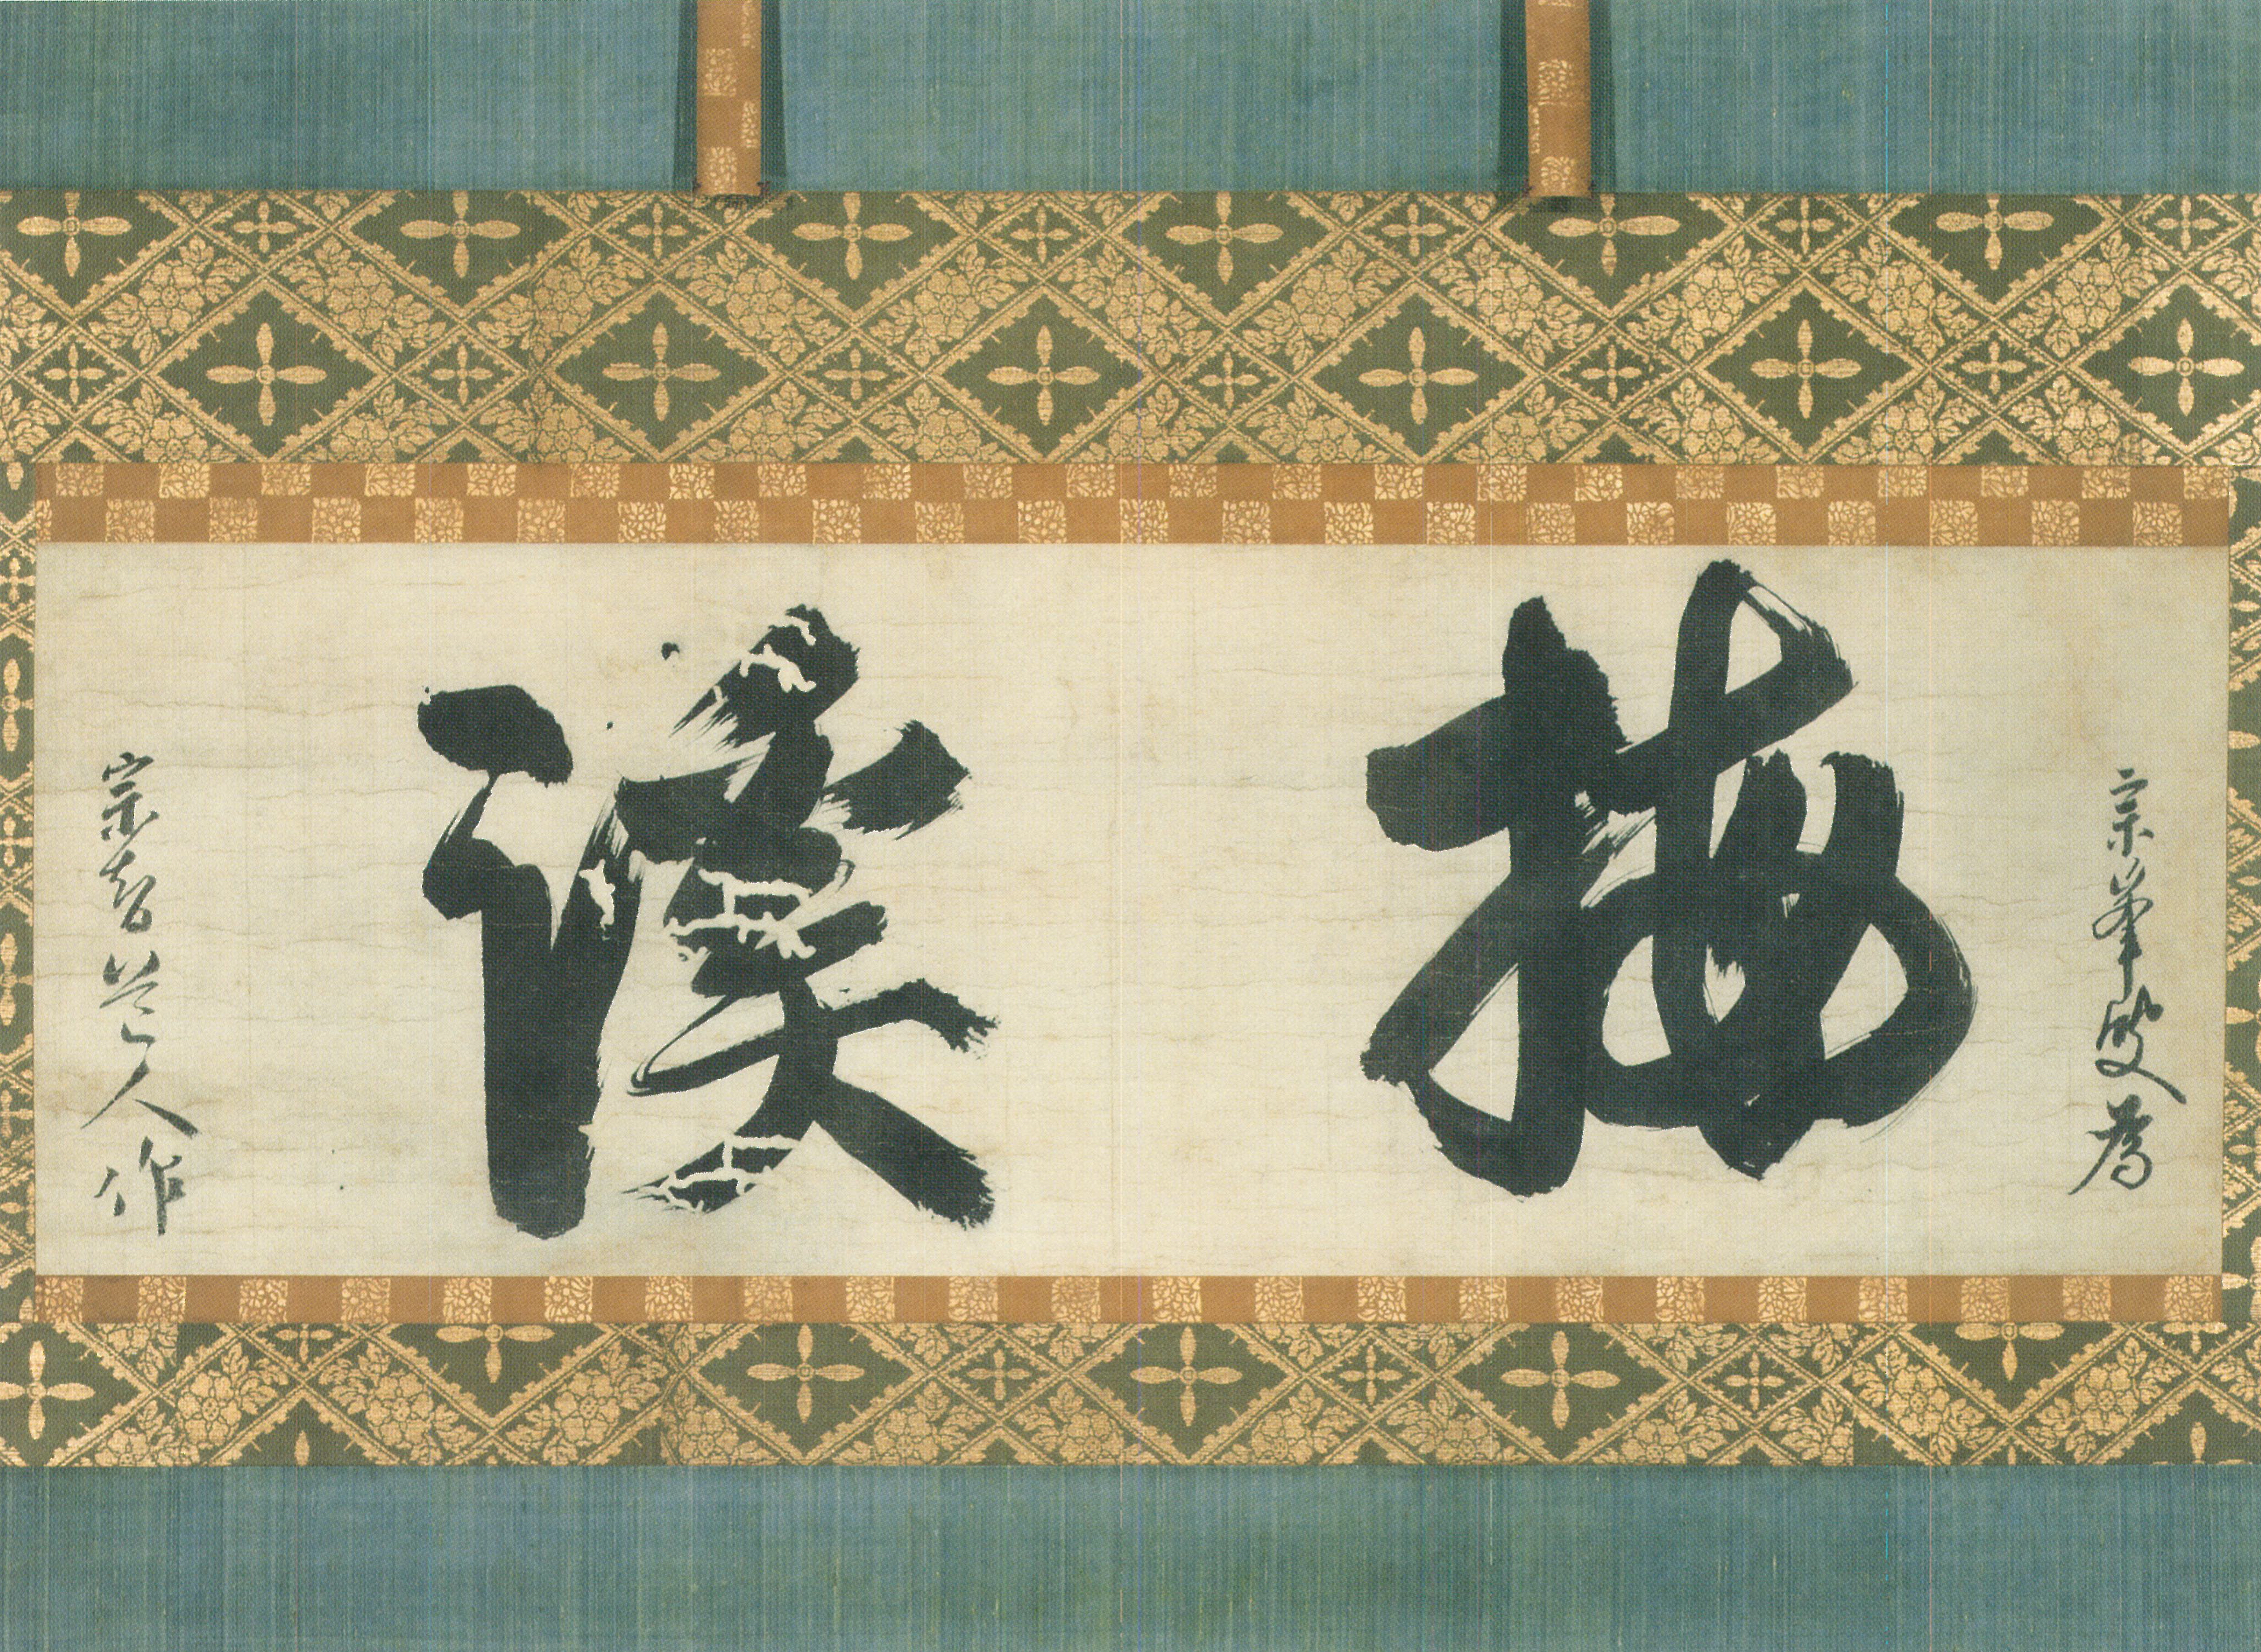 宗峯叟為
梅溪
宗智道人作